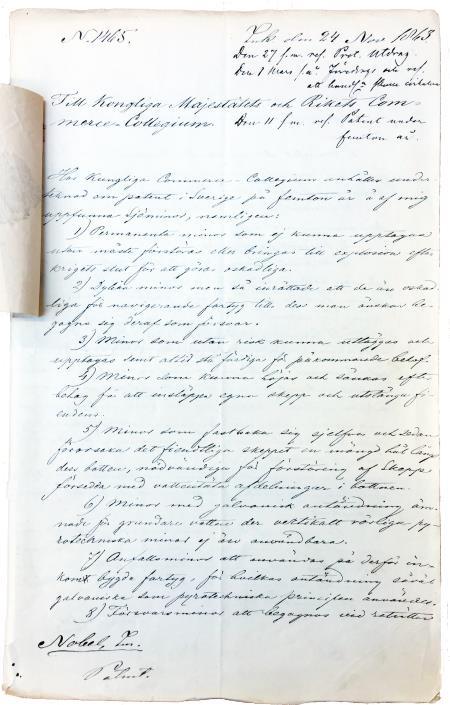 N. 1465.
Ink. den 24 Nov 1863
Den 27 f.m. ref. Prot. Utdrag.
Den 1 Mars f.å. Föredrogs och ref.
att handl.
Den 11 f.m. ref. Patent under
femton år.
Till Kongliga Majestäts och Rikets Com-
merce-Collegium.
Hos Kungliga Commerce-Collegium anhålles under-
teknad om patent i Sverige på femton år å af mig
uppfunna Sjöminor, nemligen:
1) Permanenta minor som ej kunna upptagas
utan måste förstöras eller bringas till explosion efter
krigets slut för att göras oskadliga.
2) Dylika minor men så inrättade att de äro oskad-
liga för navigerande fartyg tills dess man önskar be-
gagna sig deraf som försvar.
3) Minor som utan risk kunna utläggas och
upptagas samt alltid stå färdiga för påkommande behof.
4) Minor som kunna höjas och sänkas efter
behag för att insläppa egna skepp och utestänga fi-
endens.
5) Minor som fastbaka sig sjelfva och sedan
förorsaka det fiendtliga skeppet en mängd hål långs
dess botten, nödvändiga för förstöring af skepp
försedda med vattentäta afdelningar i bottnen.
6) Minor med galvanisk antändning äm-
nade för grundare vatten der vertikalt rörliga py-
rotechniska minor ej äro användbara.
7) Anfallsminor att användas på derför en-
komt bygda fartyg, för hvilkas antändning såväl
galvaniska som pyrotechniska principen användes.
8) Försvarsminor att begagnas vid reträtter
Nobel, Im.
Patent.